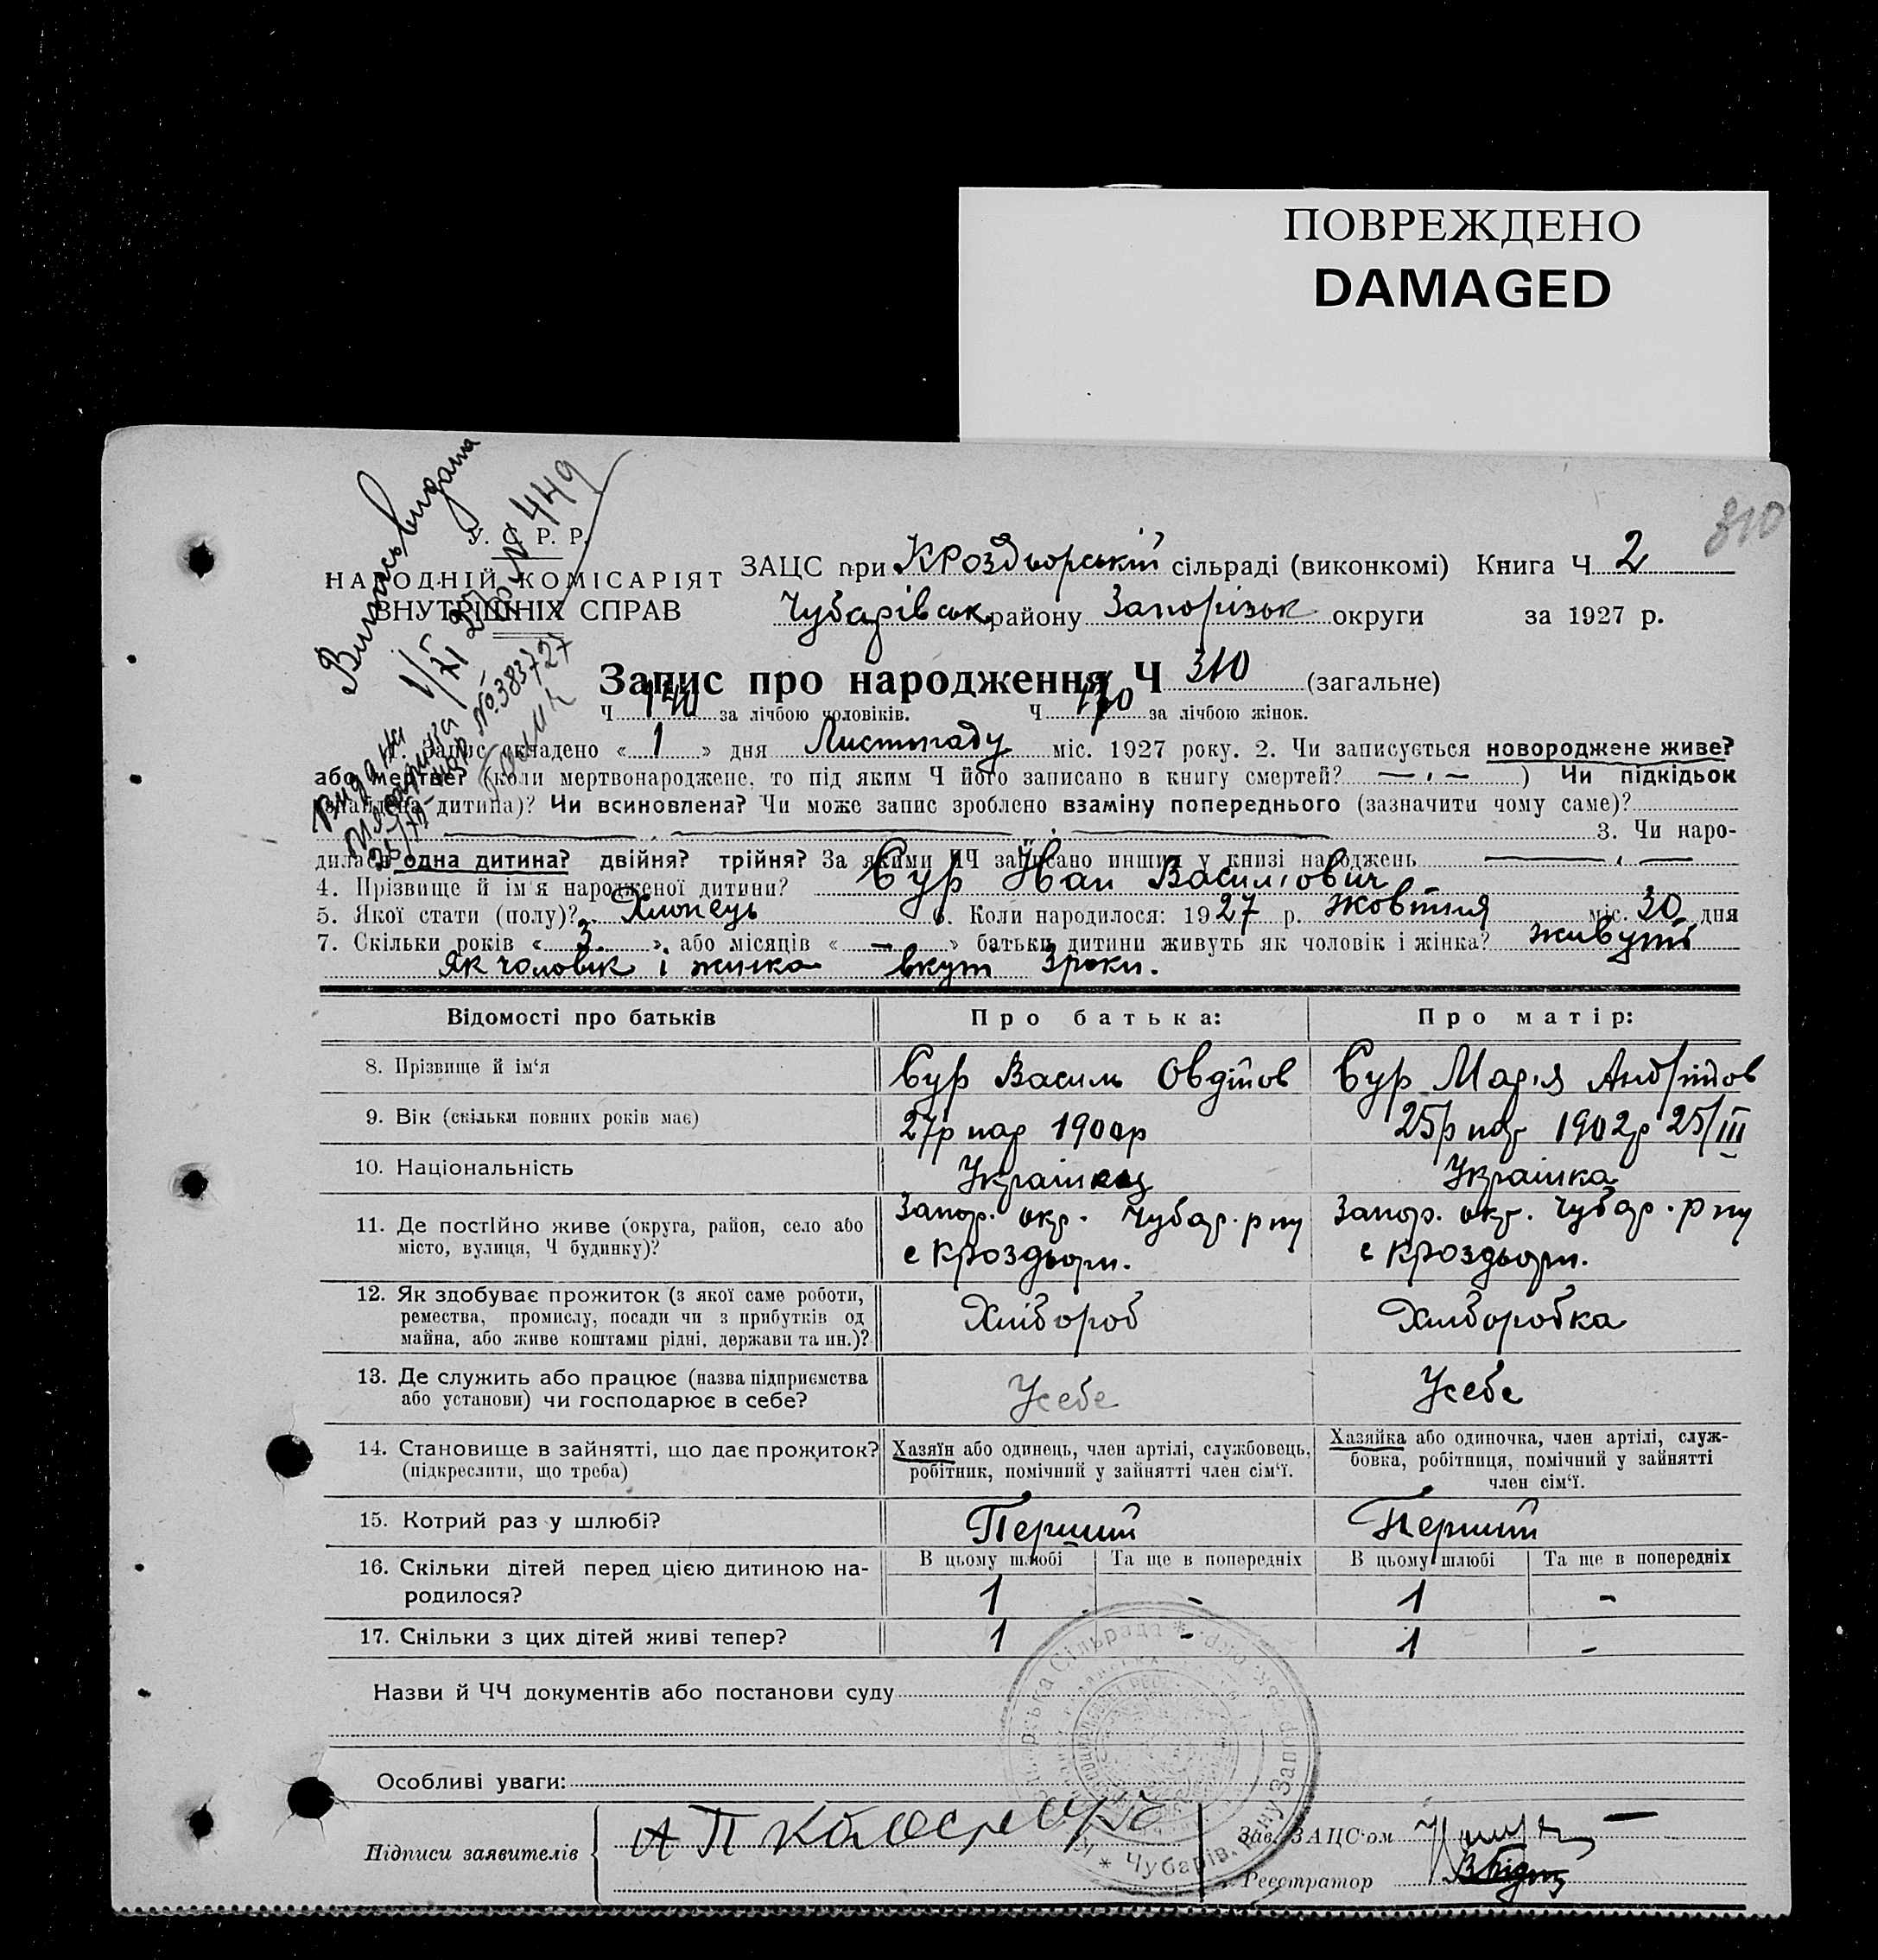 ПОВРЕЖДЕНО
DAMAGED
310
Выпись видана
N 449
У. С. Р. Р.
НАРОДНІЙ КОМІСАРІЯТ
ВНУТРІШНІХ СПРАВ
ЗАЦС при КРоздворській сільраді (виконкомі) Книга Ч 2
Чубарівськ району Запорізьк округи за 1927 р.
№ 383727
Запис про народження Ч 310 (загальне)
Ч 140 за лічбою чоловіків. Ч 170 за лічбою жінок.
Запис складено « 1 » дня Листопаду міс. 1927 року. 2. Чи записується новороджене живе?
або мертве? (коли мертвонароджене, то під яким Ч його записано в книгу смертей? — · — ) Чи підкідьок
(знайдена дитина)? Чи всиновлена? Чи може запис зроблено взаміну попереднього (зазначити чому саме)?
3. Чи наро-
дилася одна дитина? двійня? трійня? За якими ЧЧ записано инших у книзі народжень
4. Прізвище й ім'я народженої дитини? Сур Іван Васильович
5. Якої стати (полу)? Хлопець 6. Коли народилося: 1927 р. жовтня міс. 30 дня
7. Скільки років « 3 », або місяців « — » батьки дитини живуть як чоловік і жінка? живуть
як чоловік і жинка вкуп 3 роки.
Відомості про батьків Про батька: Про матір:
8. Прізвище й ім'я Сур Василь Овдіїов Сур Марія Андріїов
9. Вік (скільки повних років має) 27р нар 1900р 25р нар 1902р 25/III
10. Національність Українец Українка
11. Де постійно живе (округа, район, село або Запор. окр. Чубар. р ну Запор. окр. Чубар. р ну
місто, вулиця, Ч будинку)? с Кроздворы. с Кроздворы.
12. Як здобуває прожиток (з якої саме роботи,
ремества, промислу, посади чи з прибутків од Хлібороб Хліборобка
майна, або живе коштами рідні, держави та ин.)?
13. Де служить або працює (назва підприємства Усебе Усебе
або установи) чи господарює в себе?
14. Становище в зайнятті, що дає прожиток? Хазяїн або одинець, член артілі, службовець, Хазяйка або одиночка, член артілі, служ-
(підкреслити, що треба) робітник, помічний у зайнятті член сім'ї. бовка, робітниця, помічний у зайнятті
член сім'ї.
15. Котрий раз у шлюбі? Перший Перший
16. Скільки дітей перед цією дитиною на- В цьому шлюбі Та ще в попередніх В цьому шлюбі Та ще в попередніх
родилося? 1 - 1 -
17. Скільки з цих дітей живі тепер? 1 - 1 -
Назви й ЧЧ документів або постанови суду
Особливі уваги:
Підписи заявителів
Зав. ЗАЦС'ом
Реєстратор
Сільрада * Чубарів. р-ну Запоріз. окр. *